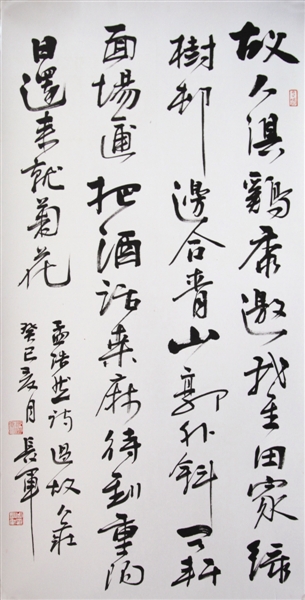 故人俱鷄黍邀我至田家綠
樹邨邊合青山郭外斜開軒
面場圃把酒話桑麻待到重陽
日還來就菊花
孟浩然詩過故人莊
癸巳夏月長軍